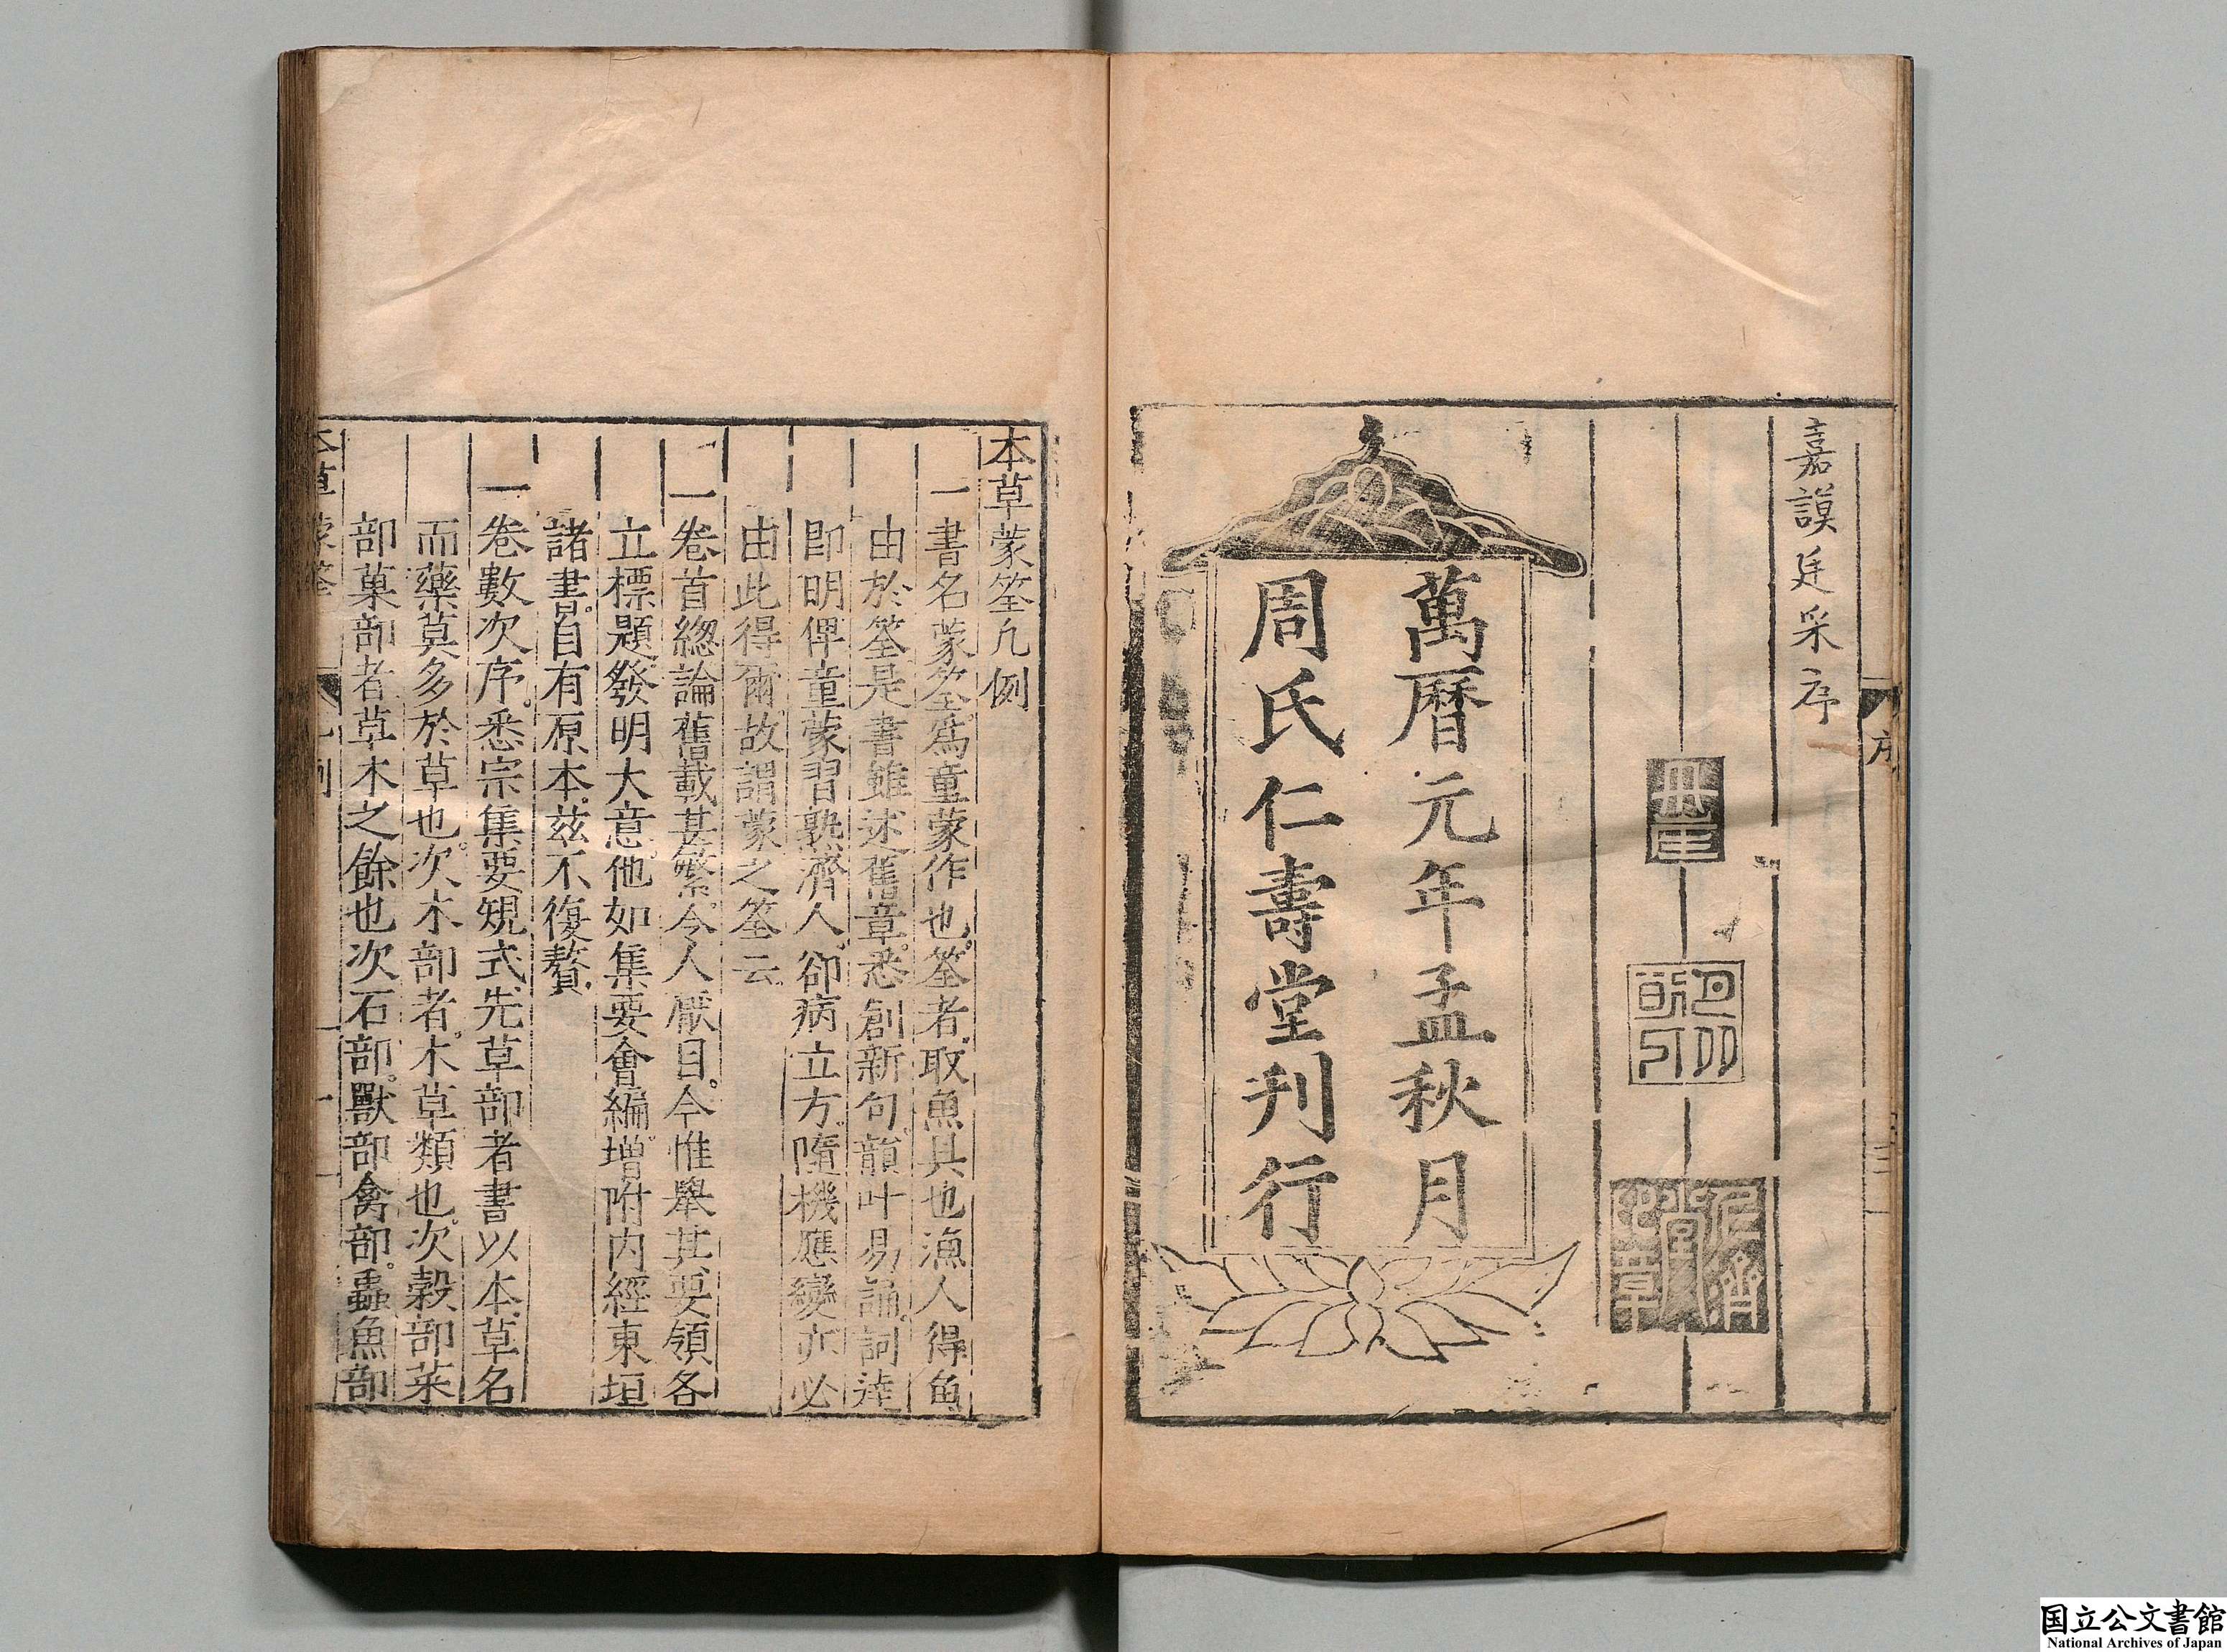 嘉謨廷采序
萬曆元年孟秋月
周氏仁壽堂刋行
序
三
本草蒙筌凡例
一書名蒙筌爲童蒙作也筌者取魚具也漁人得魚
由於筌是書雖述舊章悉創新句韻叶易誦詞達
即明俾童蒙習熟濟人卻病立方隨機應變亦必
由此得爾故謂蒙之筌云
一卷首總論舊載甚繁今人厭目今惟舉其要領各
立標題發明大意他如集要會編增附内經東垣
諸書自有原本茲不復贅
一卷數次序悉宗集要䂓式先草部者書以本草名
而藥莫多於草也次木部者木草類也次糓部菜
部菓部者草木之餘也次石部獸部禽部蟲魚部
本草蒙筌
凡例
一
国立公文書館
National Archives of Japan